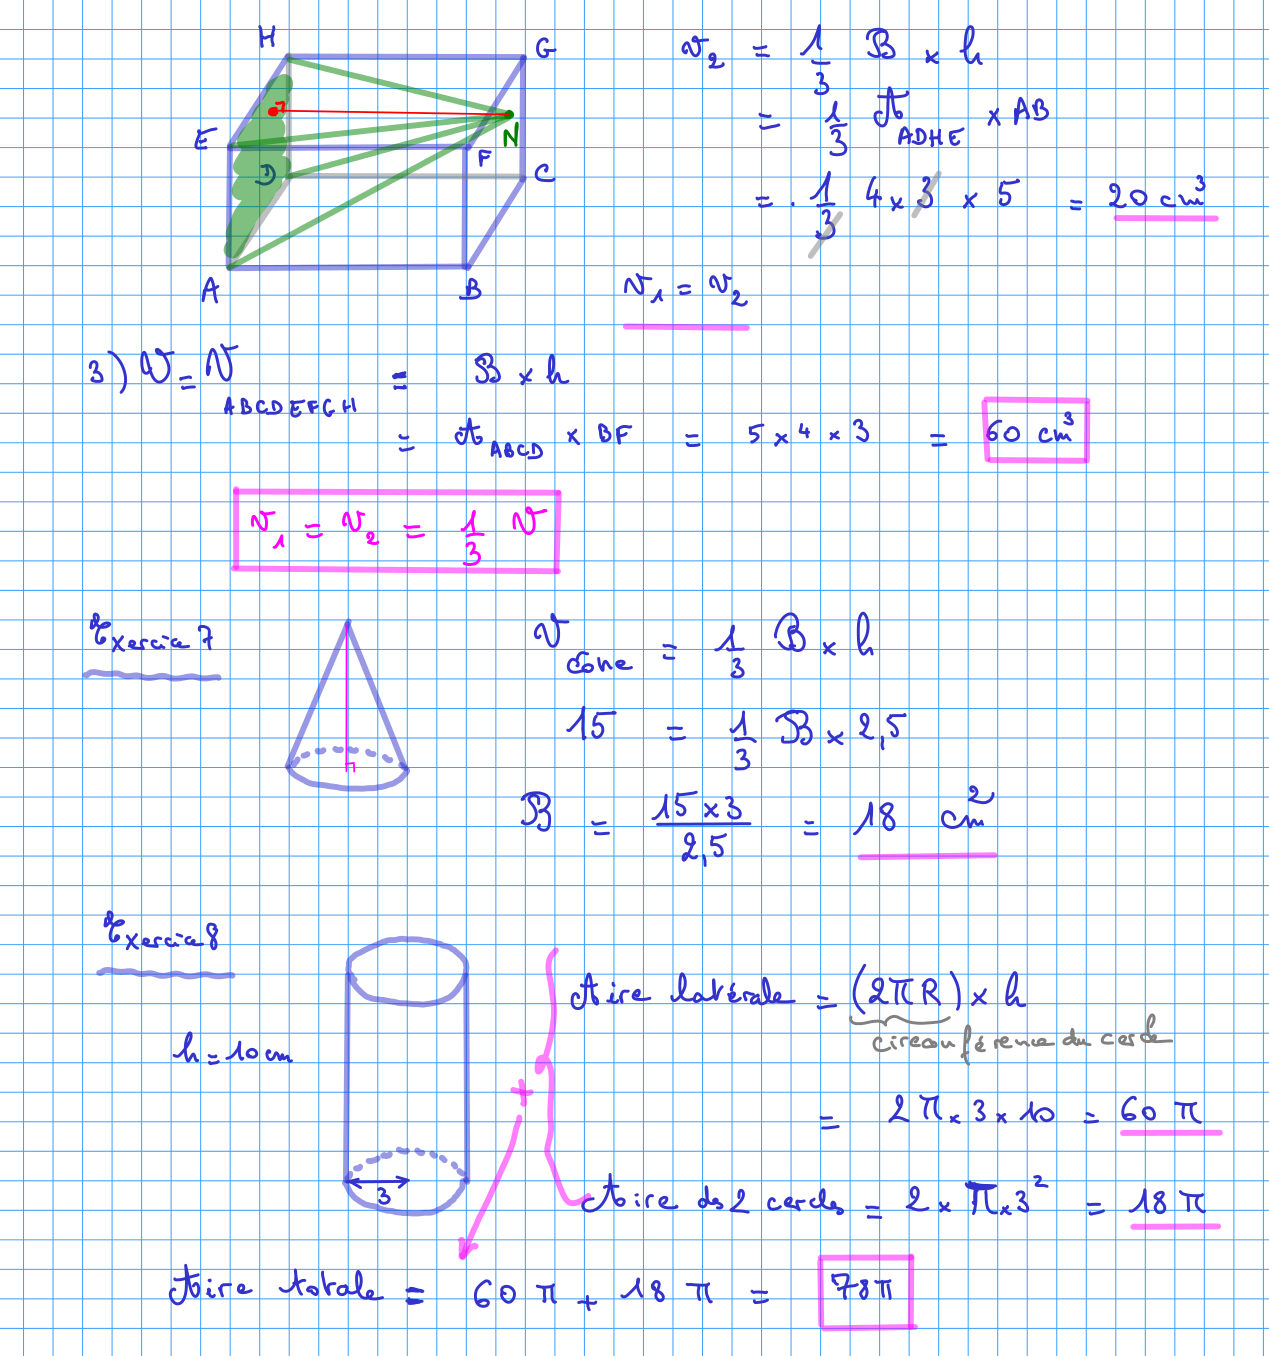 H G
E N
D F C
A B
v₂ = 1/3 B × h
= 1/3 A_ADHE × AB
= . 1/3 4 × 3 × 5 = 20 cm³
v₁ = v₂
3) V = V_ABCDEFGH = B × h
= A_ABCD × BF = 5 × 4 × 3 = 60 cm³
v₁ = v₂ = 1/3 V
Exercice 7
V_cône = 1/3 B × h
15 = 1/3 B × 2,5
B = (15 × 3)/2,5 = 18 cm²
Exercice 8
Aire latérale = (2πR) × h
circonférence du cercle
h = 10 cm
= 2π × 3 × 10 = 60 π
+
3
Aire des 2 cercles = 2 × π × 3² = 18 π
Aire totale = 60 π + 18 π = 78π